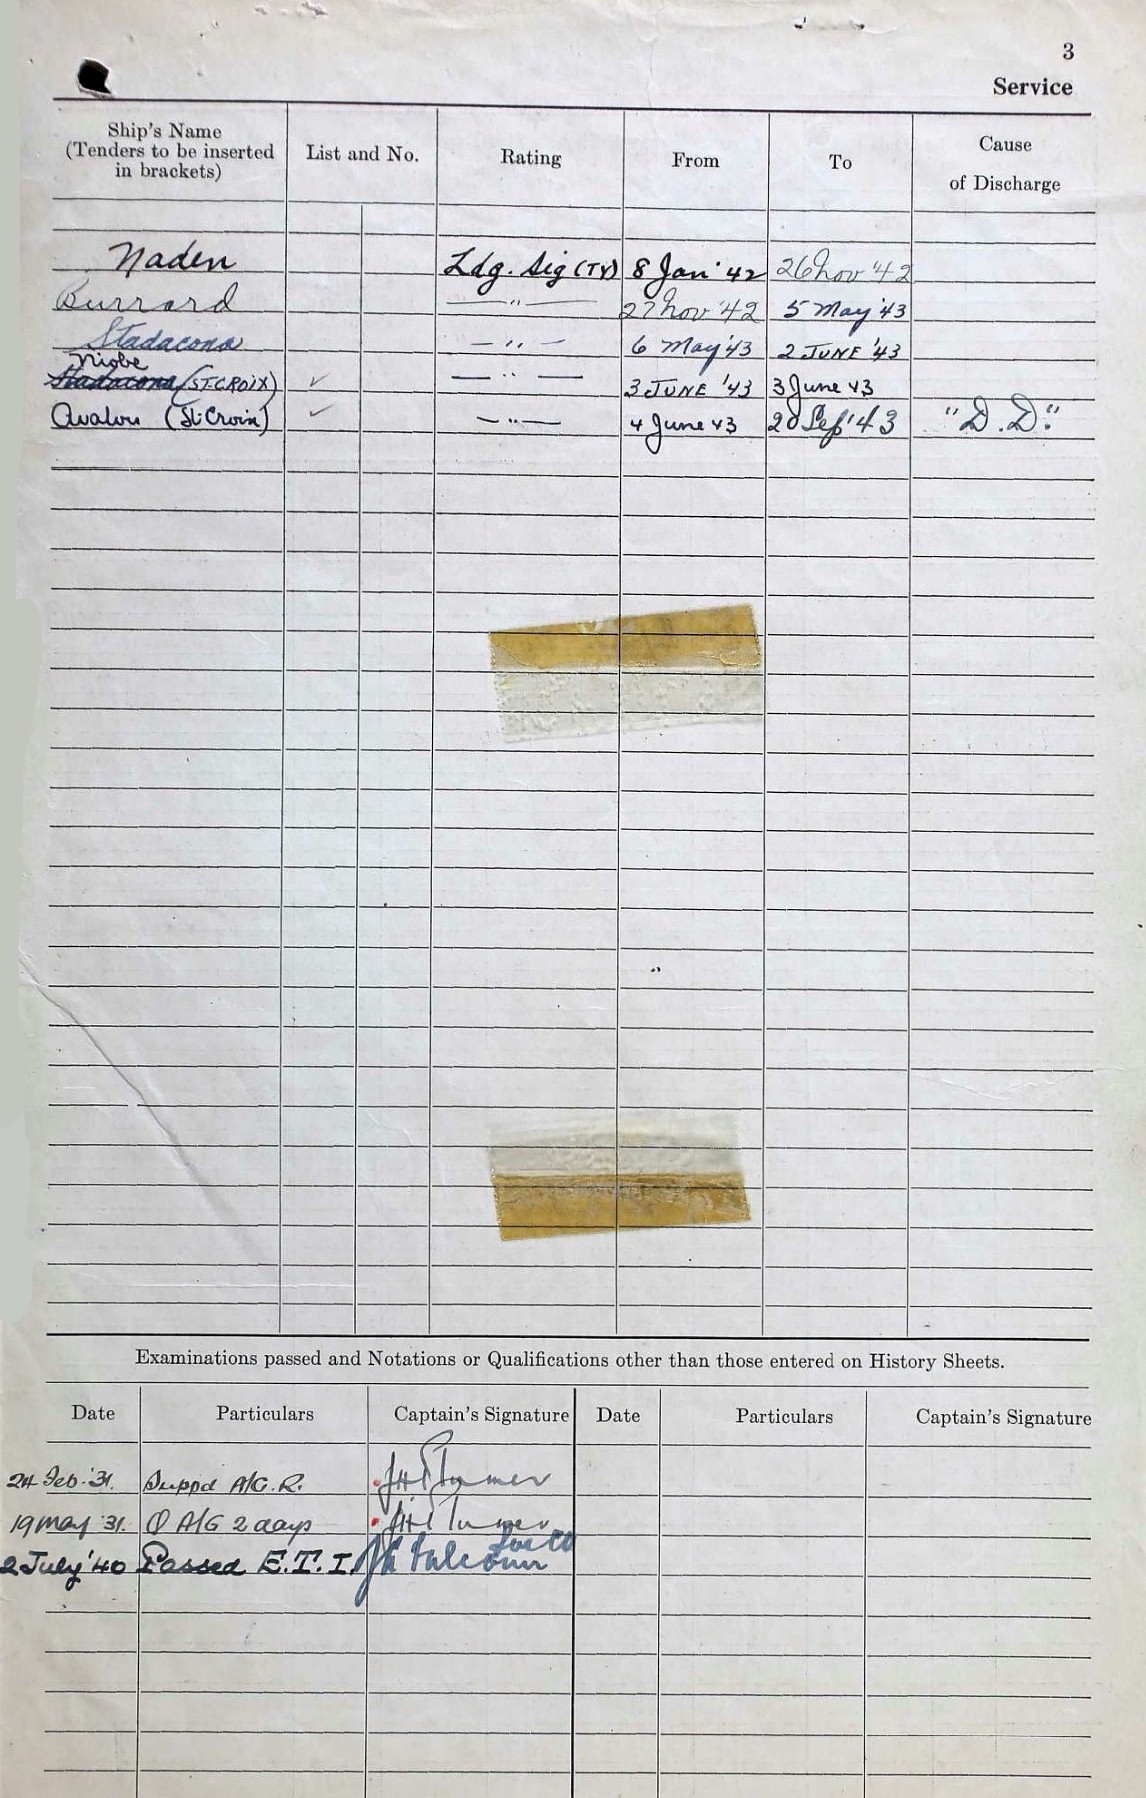 3
Service
Ship's Name (Tenders to be inserted in brackets) List and No. Rating From To Cause of Discharge
Naden Ldg. Sig (TY) 8 Jan '42 26 Nov '42
Burrard — " — 27 Nov '42 5 May '43
Stadacona — " — 6 May '43 2 JUNE '43
Niobe
Stadacona (ST. CROIX) ✓ — " — 3 JUNE '43 3 June 43
Avalon (St. Croix) ✓ — " — 4 June 43 20 Sep '43 "D.D."
Examinations passed and Notations or Qualifications other than those entered on History Sheets.
Date Particulars Captain's Signature Date Particulars Captain's Signature
24 Feb. '31. A/G. R.
19 May '31. Q A/G 2 days
2 July '40 Passed E.T.I.